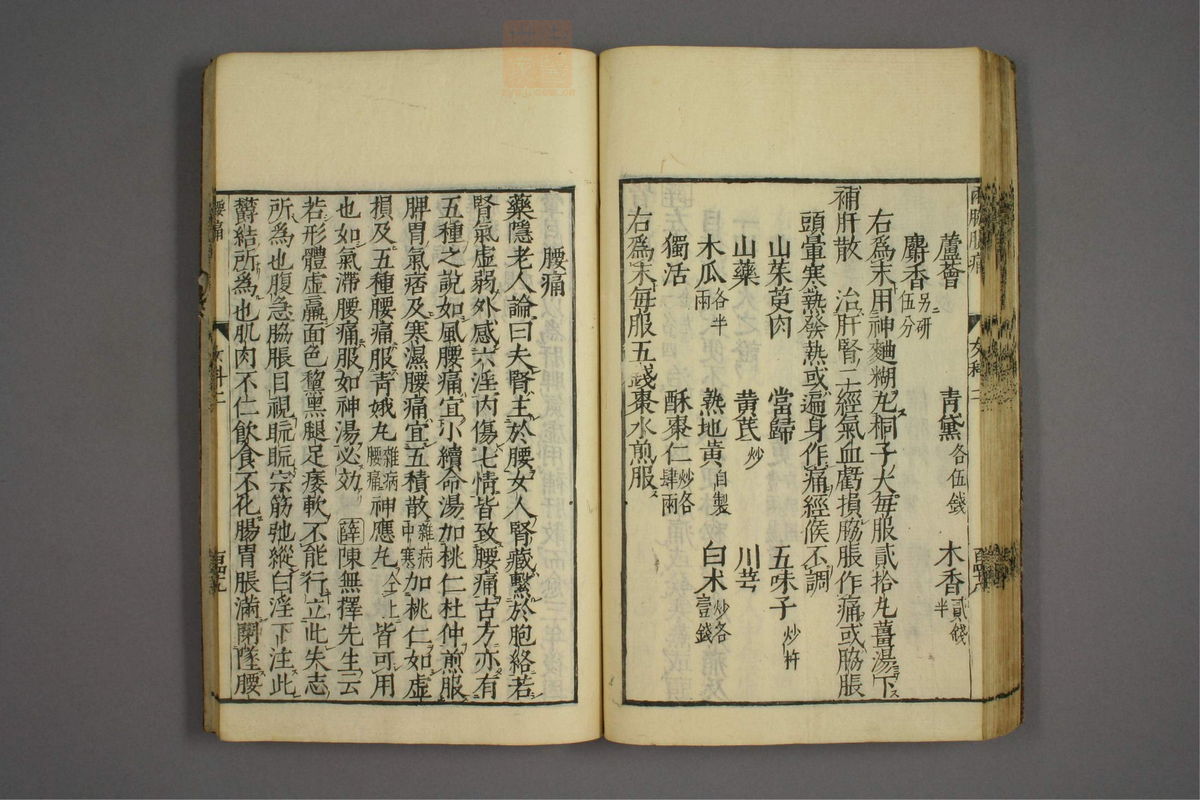 蘆薈 青黛各伍錢 木香貳錢半
麝香另研伍分
右爲末用神麯糊丸桐子大每服貳拾丸薑湯下
補肝散 治肝腎二經氣血虧損脇脹作痛或脇脹
頭暈寒熱發熱或遍身作痛經候不調
山茱萸肉 當歸 五味子炒杵
山藥 黄芪炒 川芎
木瓜各半兩 熟地黄自製 白术炒各壹錢
獨活 酥棗仁炒各肆兩
右爲末每服五錢棗水煎服
腰痛
藥隱老人論曰夫腎主於腰女人腎藏繫於胞絡若
腎氣虛弱外感六淫内傷七情皆致腰痛古方亦有
五種之說如風腰痛宜小續命湯加桃仁杜仲煎服
脾胃氣痞及寒濕腰痛宜五積散雜病中寒加桃仁如虛
損及五種腰痛服青娥丸雜病腰痛神應丸仝上皆可用
也如氣滯腰痛服如神湯必効薛陳無擇先生云
若形體虛羸面色黧黑腿足痿軟不能行立此失志
所爲也腹急脇脹目視䀮䀮宗筋弛縱白淫下注此
欝結所爲也肌肉不仁飲食不化腸胃脹滿閃墜腰
腰痛 女科二
女科二